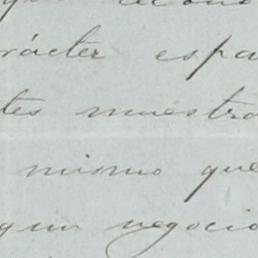 rácter espa
tes muestra
mismo que
gun negocio